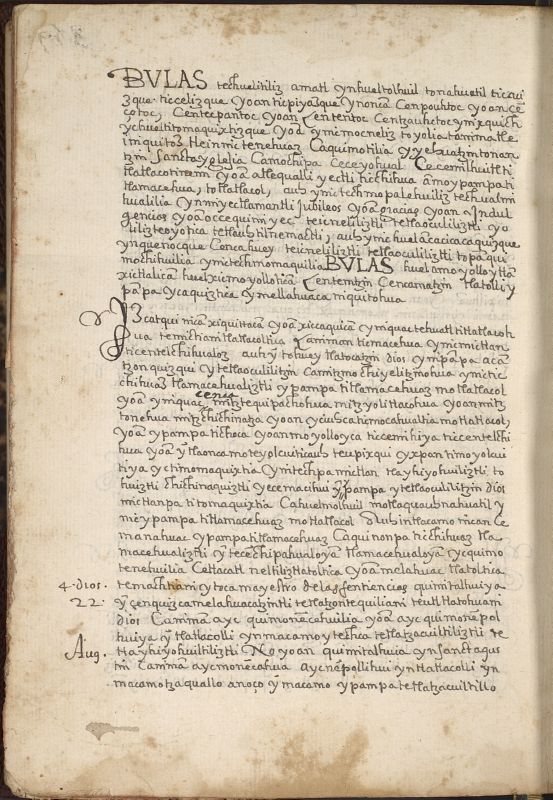 BVLAS techuelitiliz amatl ynhueltolhuil tonahuatil ticaui
zque. ticcelizque yoan ticpiyazque ynonca Cenpouhtoc yoan cẽ
çotoc, Centecpantoc yoan Cententoc Centzauhctoc ynixquich
ychueltitomaquixtizque yoã ynimocneliz toyolia tanima tle
inquitoz tleinmictenehuaz Caquimotilia yyehuatzin tonan
tzin Sancta yglesia Camochipa Ceceyohual Cecemilhuitl ti
tlatlacotinemi yoã atlequalli yectli ticchihua ãmo ypampa ti
tlamacehua, totlatlacol, auh ynictechmopalehuiliz techualmi
hualilia ynmiyectlamantli Jubileos yoã gracias yoan Indul
gencias yoã occequimiyec teicneliliztli tetlaocuiliztli yo
lilizteoyotica tetlauhtilnemactli; auh ynic huel açacicacaquizque
ynquenocque Cencahuey teicneliliztli tetlaocuiliztli topa qui
mochihuilia ynictechmomaquilia BVLAS huel amoyolloytla
xictlalica huelxicmoyollotica Centemtzin Cencamatzin tlatolli y
pãpa ycaquiztica ymellahuaca niquitohua
Izcatqui nica xiquittaca yoã xiccaquica yniquac tehuatl titlatlacoh
hua temictiani tlatlacoltica Camman ticmacehua ynicmictlan
ticentelchihualoz auh yn tohuey tlatocatzin dios ynipãpa acã
tzonquizqui ytetlaocuililitzin Camitzmochiyelitzinohua ynictic
chihuaz tlamacehualiztli ypampa titlamacehuaz motlatlacol
yoã yniquac cenca mitztequipachohua mitzyolitlacohua yoan mitz
tonehua mitzchichinatza yoan ycuiuhca timocahualtia motlatlacol,
yoã ypampa tichoca yoan moyolloyca ticcemihiya ticcentelchi
hua yoã ytlaonca moteyolcuiticauh teupixqui yxpantimoyolcui
tiya yctimomaquixtia ynitechpa mictlan tlayhiyohuiliztli to
huiztli chichinaquiztli ycemacihui ypampa ytetlaocuililitzin dios
mictlanpa titomaquixtia Cahuelmolhuil motlaquauhnahuatil y
nic ypampa titlamacehuaz motlatlacol Auh intlacamo nican Ce
manahuac ypampa titlamacehuaz Caquinonpa ticchihuaz tla
macehualiztli ytecechipahualoyã tlamacehualoyã ycquimo
tenehuilia Cetlacatl neltiliztlatoltica yoã melahuac tlatoltica
4. dios. temachtiani ytoca mayestro delas sentencias quimitalhuiya
22. yn çenquizcamelahuacatzintli tetlatzontequiliani teutl tlatohuani
dios Camma ayc quimonecehuilia yoã ayc quimonepol
huiya yn tlatlacolli ynmacamo ytechca tetlatzacuiltiliztli te
Aug. tlayhiyohuiltiliztli. No yoan quimitalhuia ynSanct agus
tin Camman ayc monecahua ayc nepollihui yntlatlacolli yn
macamotzaquallo anoço yn macamo ypampa tetlatzacuiltillo